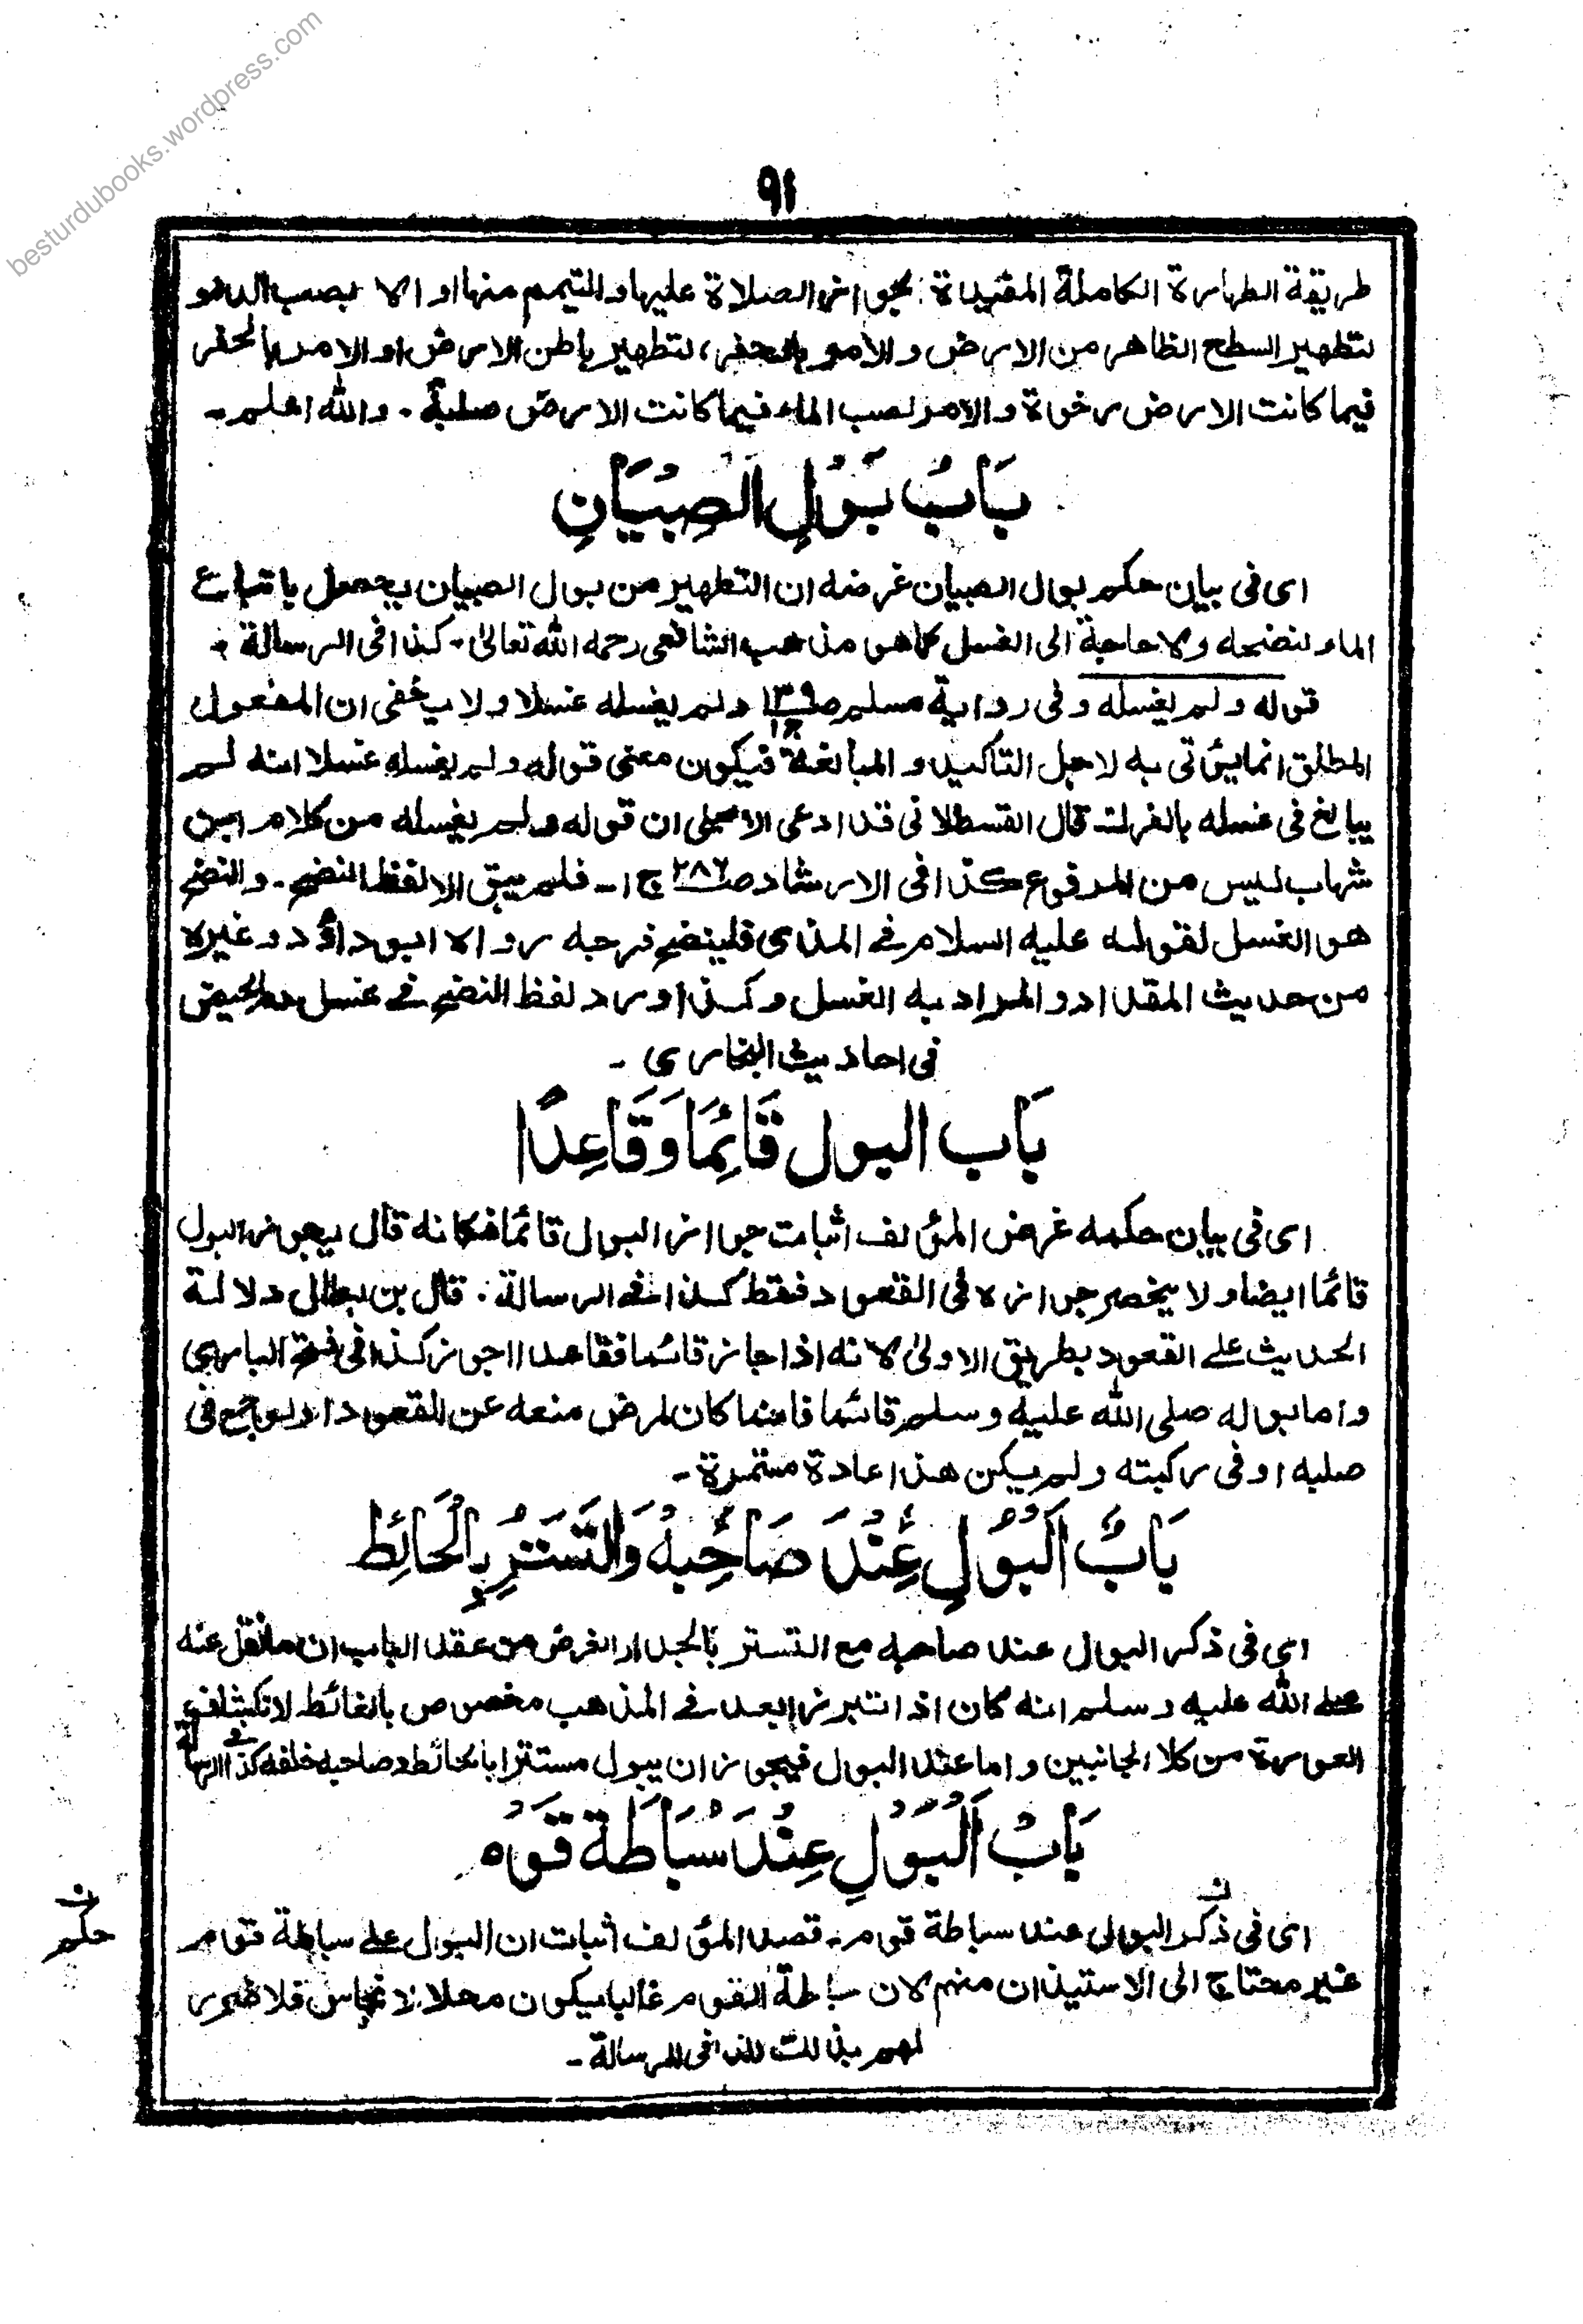 besturdubooks.wordpress.com
٩١
طريقة الطهارة الكاملة المفيدة لجواز الصلاة عليها والتيمم منها اولا بصب الدلو
لتطهير السطح الظاهر من الارض والامر بالحفر، لتطهير باطن الارض او الامر بالحفر
فيما كانت الارض رخوة والامر لصب الماء فيما كانت الارض صلبة . والله اعلم -
بَابُ بَوْلِ الصِبْيَانِ
اى فى بيان حكم بول الصبيان غرضه ان التطهير من بول الصبيان يحصل باتباع
الماء ونضحه ولا حاجة الى الغسل كما هو مذهب الشافعى رحمه الله تعالىٰ - كذا فى الرسالة .
قوله ولم يغسله وفى رواية مسلم ص١٣٩ ج١ ولم يغسله غسلا ولا يخفى ان المفعول
المطلق انما يؤتى به لاجل التاكيد و المبالغة فيكون معنى قوله ولم يغسله غسلا انه لم
يبالغ فى غسله بالفرك قال القسطلانى قد ادعى الاصيلى ان قوله ولم يغسله من كلام ابن
شهاب ليس من المرفوع كذا فى الارشاد ص٢٨٧ ج ١ - فلم يبق الا لفظ النضح . و النضح
هو الغسل لقوله عليه السلام فى المذى فلينضح فرجه رواه ابوداؤد وغيره
من حديث المقداد و المراد به الغسل وكذا ورد لفظ النضح فى غسل دم الحيض
فى احاديث البخارى -
بَاب البول قَائِمًا وَقَاعِدًا
اى فى بيان حكمه غرض المؤلف اثبات جواز البول قائما فكانه قال يجوز البول
قائما ايضا ولا ينحصر جوازه فى القعود فقط كذا فى الرسالة . قال بن بطال دلالة
الحديث على القعود بطريق الاولىٰ لانه اذا جاز قائما فقاعدا اجوز كذا فى فتح البارى
واما بوله صلى الله عليه وسلم قائما فانما كان لمرض منعه عن القعود او لوجع فى
صلبه او فى ركبته ولم يكن هذا عادة مستمرة -
بَابُ الْبُوْلِ عِنْدَ صَاحِبِهٖ وَالتَّسَتُرِ بِالْحَائِط
اى فى ذكر البول عند صاحبه مع التستر بالجدار الغرض من عقد الباب ان ما نقل عنه
صلى الله عليه وسلم انه كان اذا تبرز ابعد فى المذهب مخصوص بالغائط لانكشاف
العورة من كلا الجانبين و اما عند البول فيجوز ان يبول مستترا بالحائط وصاحبه خلفه كذا فى الرسالة
بَابُ الْبَوْلِ عِنْدَ سُبَاطَة قَوْمٍ
اى فى ذكر البول عند سباطة قوم - قصد المؤلف اثبات ان البول على سباطة قوم
غير محتاج الى الاستيذان منهم لان سباطة القوم غالبا يكون محلا لانجاس فلا ضرر
لهم بذالك كذا فى الرسالة -
ن
حكم